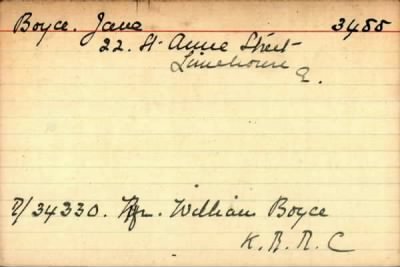 Boyce. Jane 3488
22. St Anne Street
Limehouse
E.
R/34330. Rfn. William Boyce
K.R.R.C